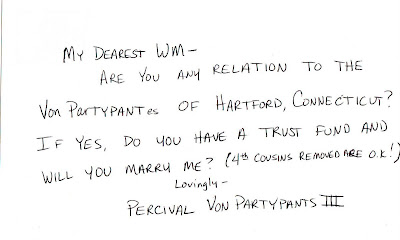 My Dearest Wm-
Are you any relation to the
Von Partypantes of Hartford, Connecticut?
If yes, do you have a trust fund and
will you marry me? (4th cousins removed are o.k!)
Lovingly-
Percival Von Partypants III